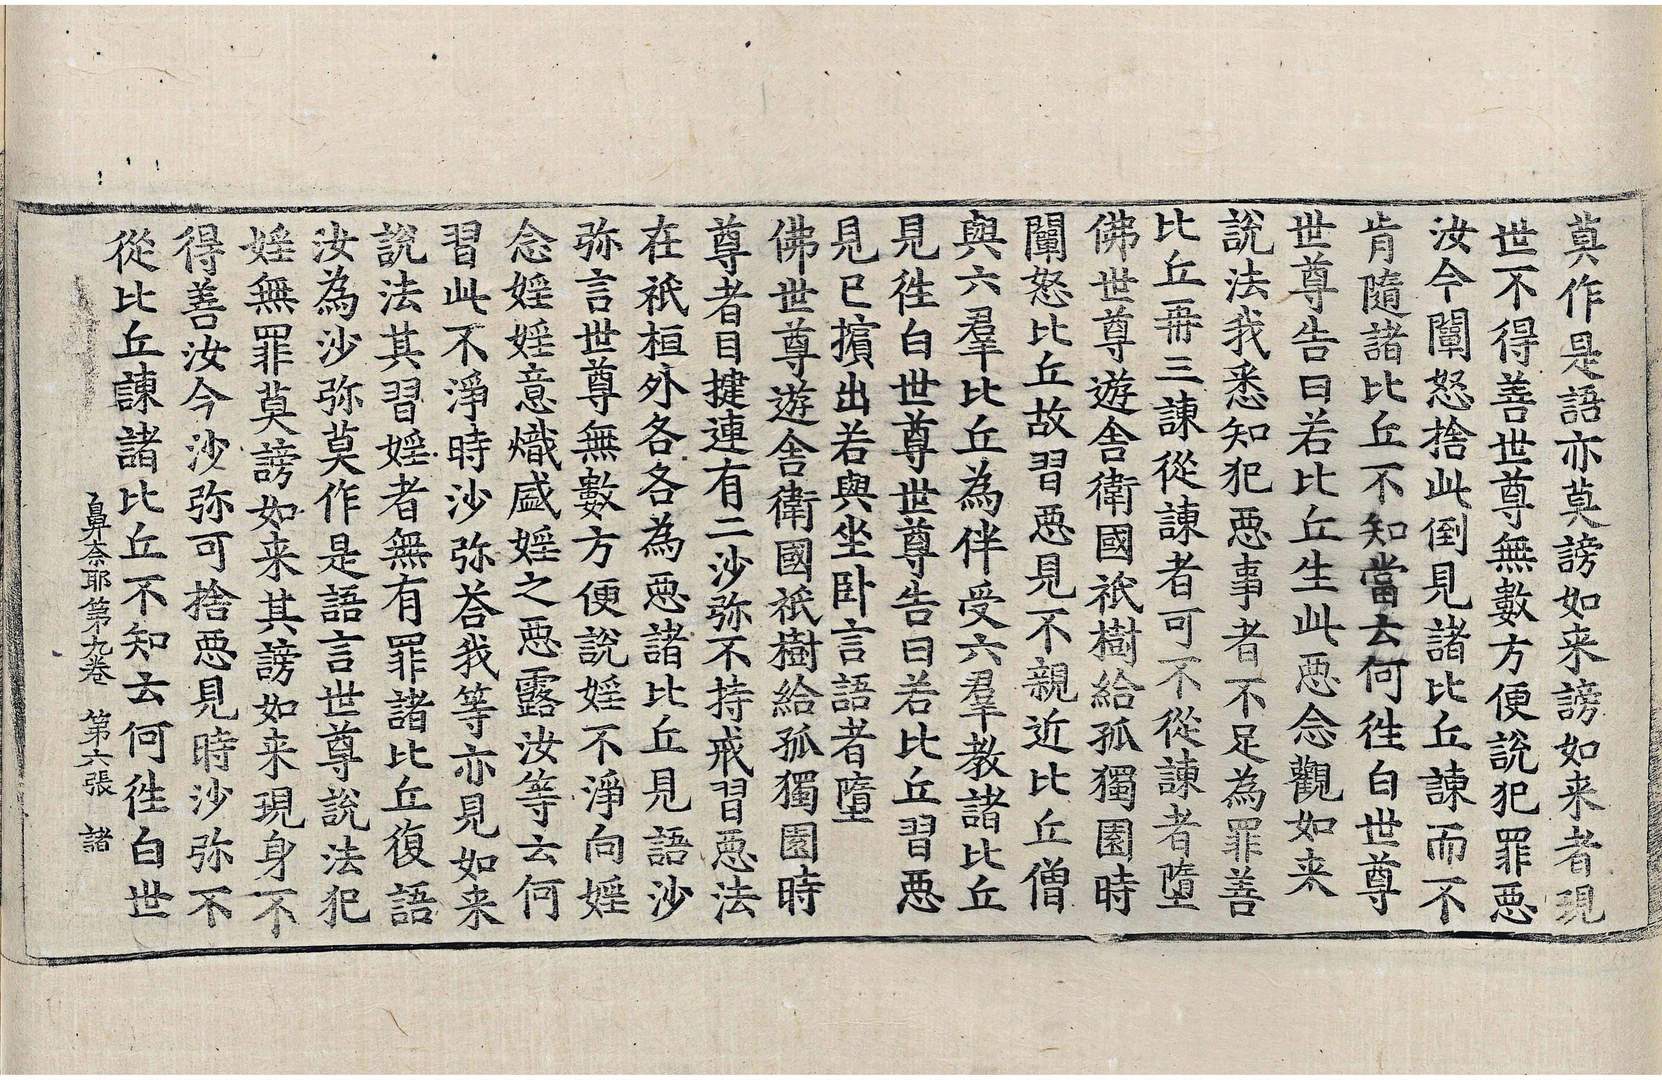 莫作是語亦莫謗如来謗如来者現
世不得善世尊無數方便說犯罪惡
汝今闡怒捨此倒見諸比丘諫而不
肯隨諸比丘不知當去何徃白世尊
世尊告曰若比丘生此惡念觀如来
說法我悉知犯惡事者不足為罪善
比丘再三諫從諫者可不從諫者墮
佛世尊遊舎衛國祇樹給孤獨園時
闡怒比丘故習惡見不親近比丘僧
與六羣比丘為伴受六羣教諸比丘
見徃白世尊世尊告曰若比丘習惡
見已擯出若與坐卧言語者墮
佛世尊遊舎衛國祇樹給孤獨園時
尊者目揵連有二沙弥不持戒習惡法
在祇桓外各各為惡諸比丘見語沙
弥言世尊無數方便說婬不淨向婬
念婬婬意熾盛婬之惡露汝等云何
習此不淨時沙弥荅我等亦見如来
說法其習婬者無有罪諸比丘復語
汝為沙弥莫作是語言世尊說法犯
婬無罪莫謗如来其謗如来現身不
得善汝今沙弥可捨惡見時沙弥不
從比丘諫諸比丘不知云何徃白世
鼻奈耶第九卷 第六張 諸